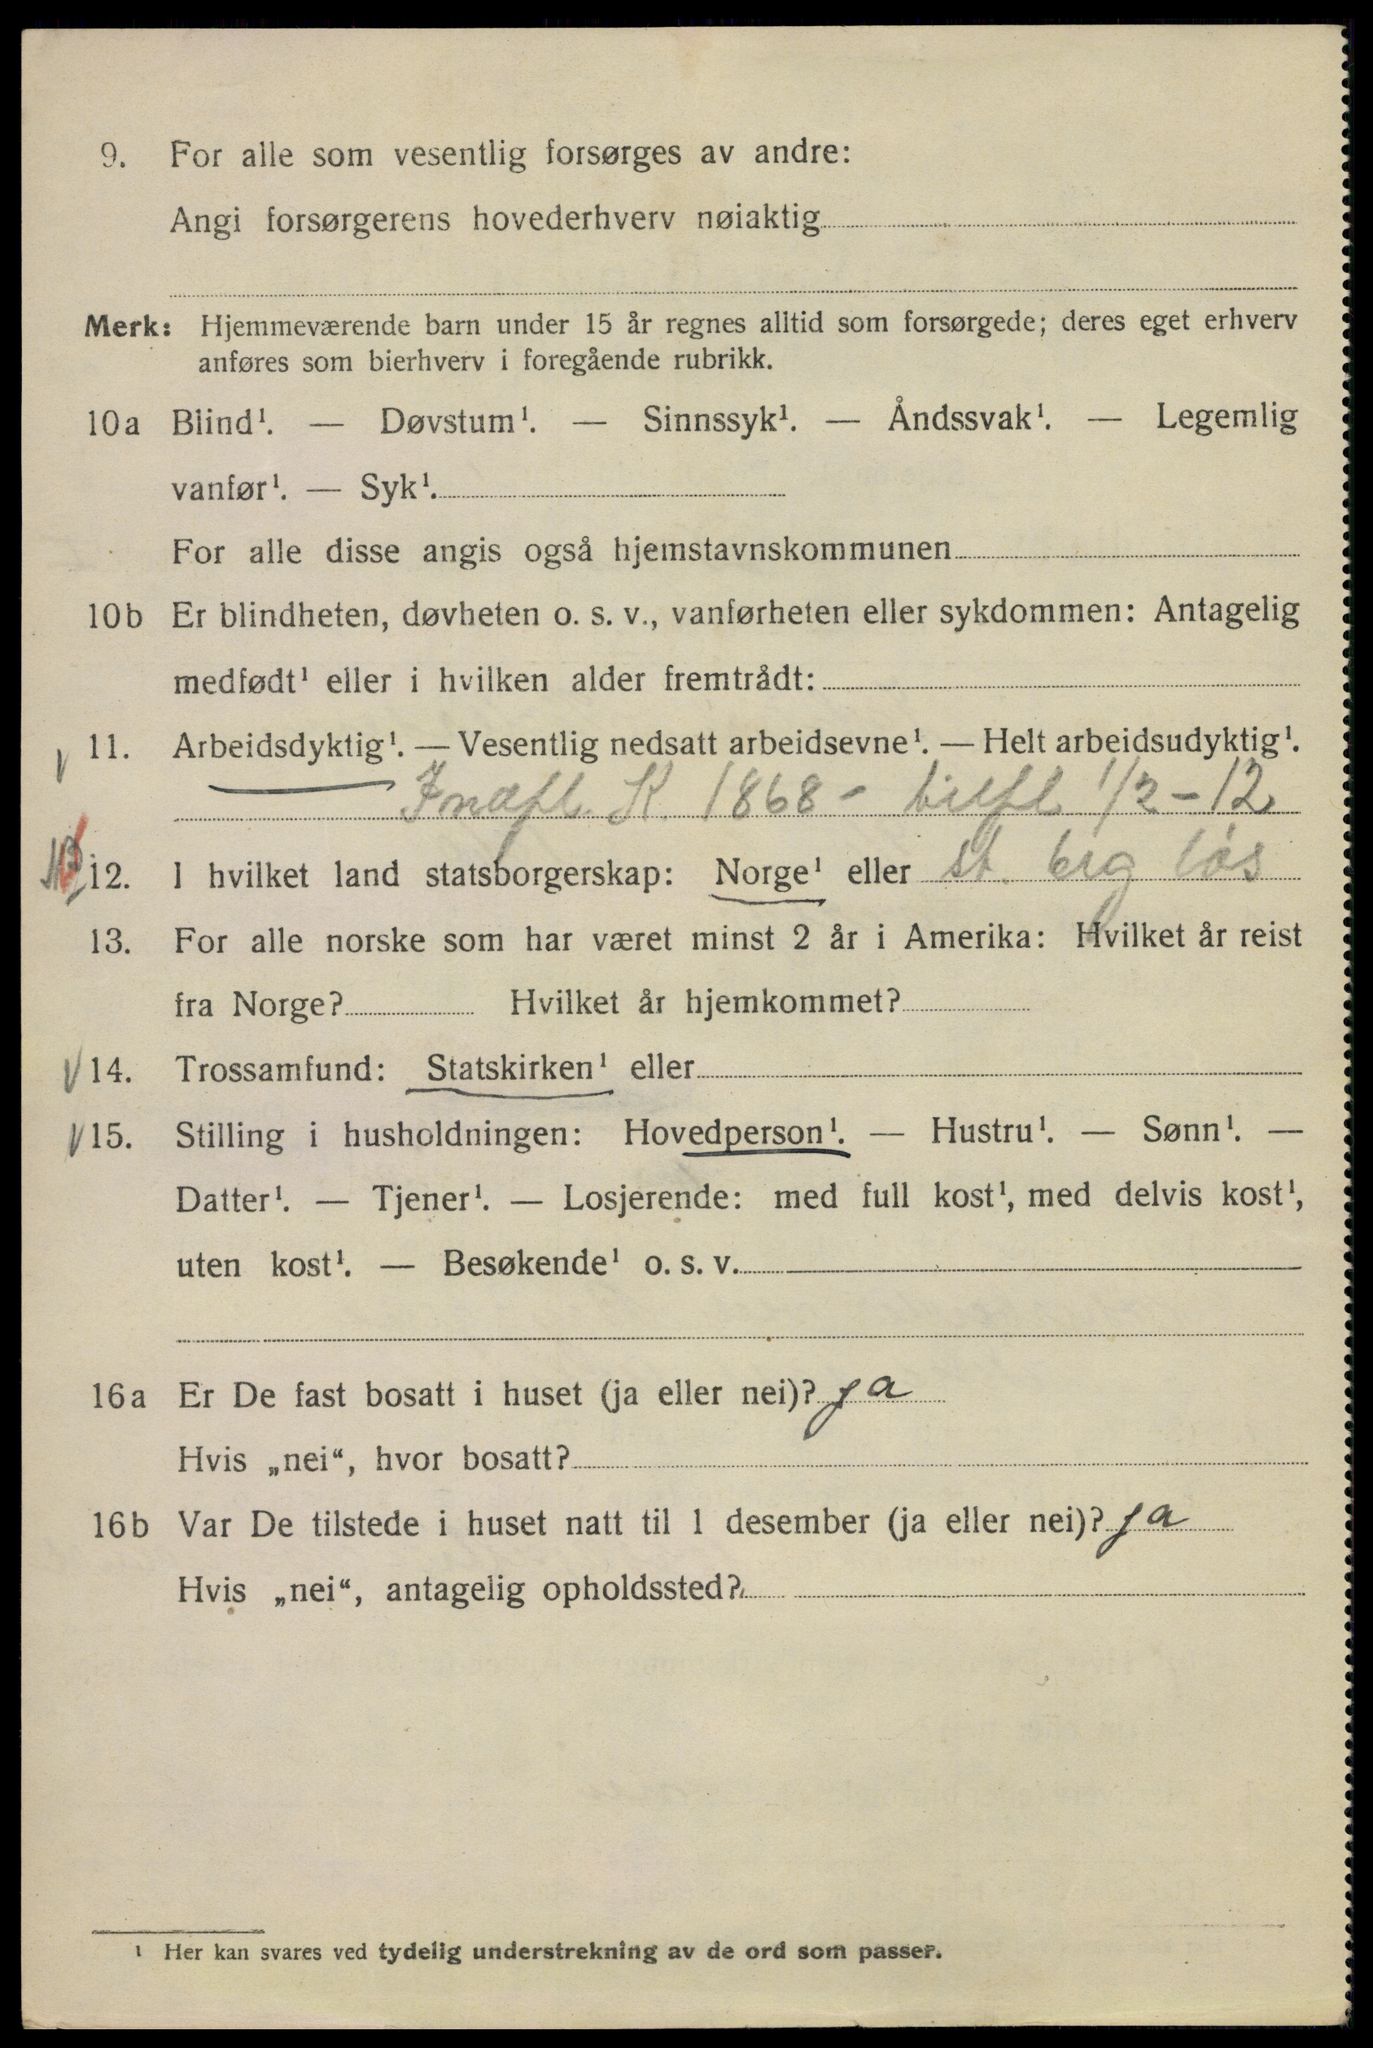 9. For alle som vesentlig forsørges av andre:
Angi forsørgerens hovederhverv nøiaktig
Merk: Hjemmeværende barn under 15 år regnes alltid som forsørgede; deres eget erhverv
anføres som bierhverv i foregående rubrikk.
10a Blind¹. — Døvstum¹. — Sinnssyk¹. — Åndssvak¹. — Legemlig
vanfør¹. — Syk¹.
For alle disse angis også hjemstavnskommunen
10b Er blindheten, døvheten o. s. v., vanførheten eller sykdommen: Antagelig
medfødt¹ eller i hvilken alder fremtrådt:
11. Arbeidsdyktig¹. — Vesentlig nedsatt arbeidsevne¹. — Helt arbeidsudyktig¹.
Indfl. K. 1868 - 1/2-12
12. I hvilket land statsborgerskap: Norge¹ eller st. brg løs
13. For alle norske som har været minst 2 år i Amerika: Hvilket år reist
fra Norge? Hvilket år hjemkommet?
14. Trossamfund: Statskirken¹ eller
15. Stilling i husholdningen: Hovedperson¹. — Hustru¹. — Sønn¹. —
Datter¹. — Tjener¹. — Losjerende: med full kost¹, med delvis kost¹,
uten kost¹. — Besøkende¹ o. s. v.
16a Er De fast bosatt i huset (ja eller nei)? ja
Hvis „nei“, hvor bosatt?
16b Var De tilstede i huset natt til 1 desember (ja eller nei)? ja
Hvis „nei“, antagelig opholdssted?
¹ Her kan svares ved tydelig understrekning av de ord som passer.